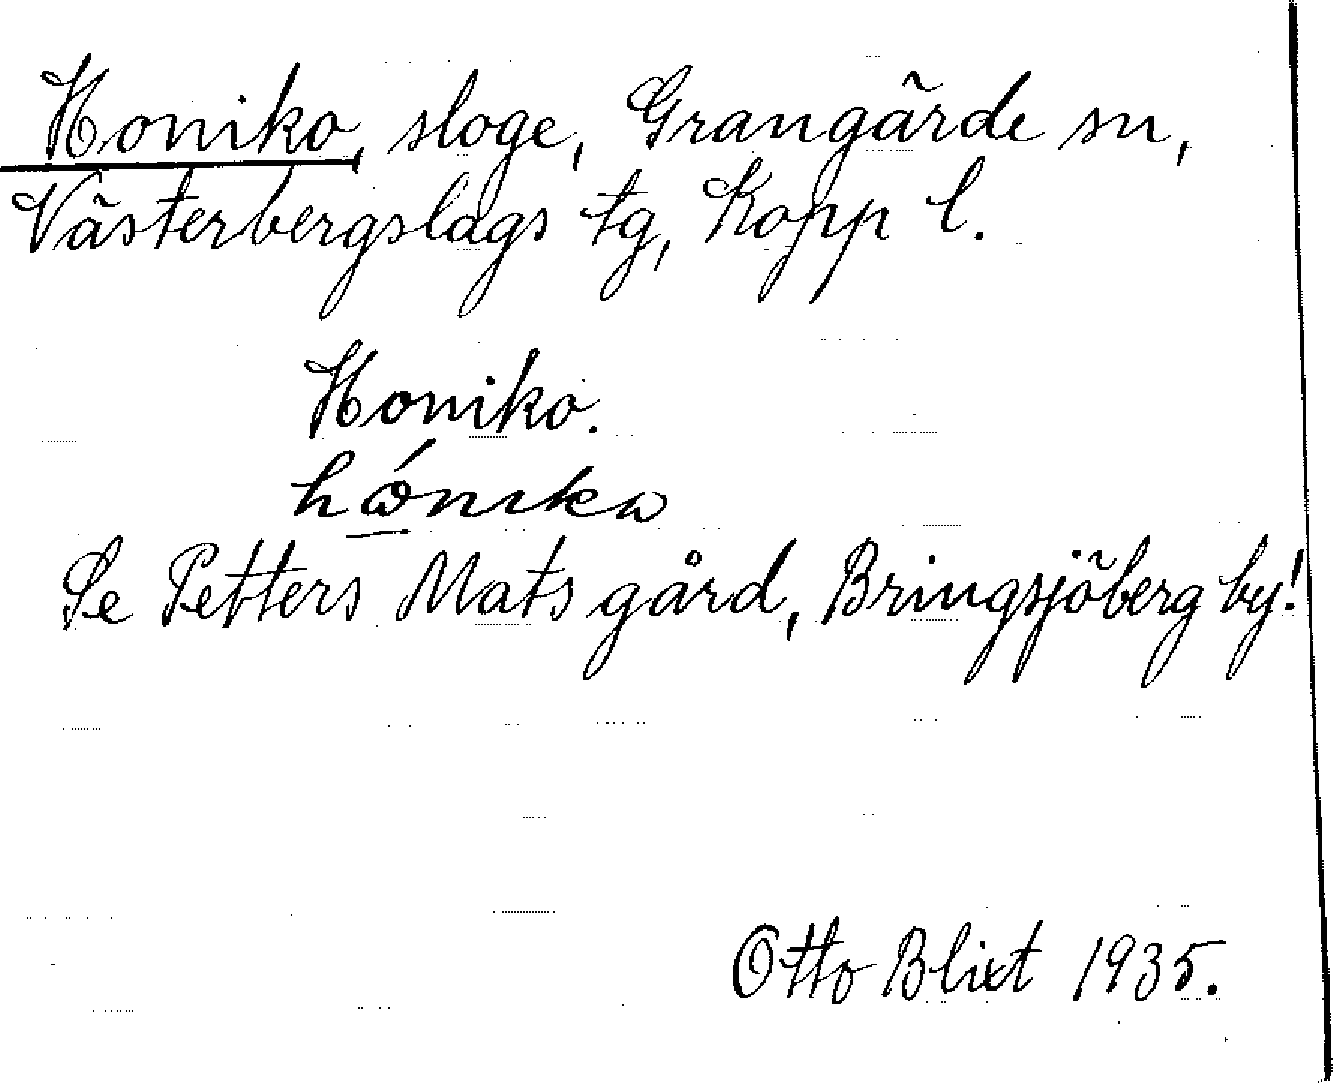 Honiko, sloge, Grangärde sn,
Västerbergslags tg, Kopp l.
Honiko.
Se Petters Mats gård, Bringsjöberg by!
Otto Blixt 1935.